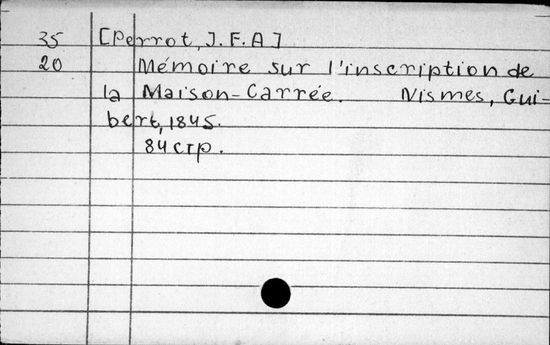 35 [Perrot, J.F.A]
20 Mémoire sur l'inscription de
la Maison-Carrée. Nismes, Gui-
bert, 1845.
84 стр.